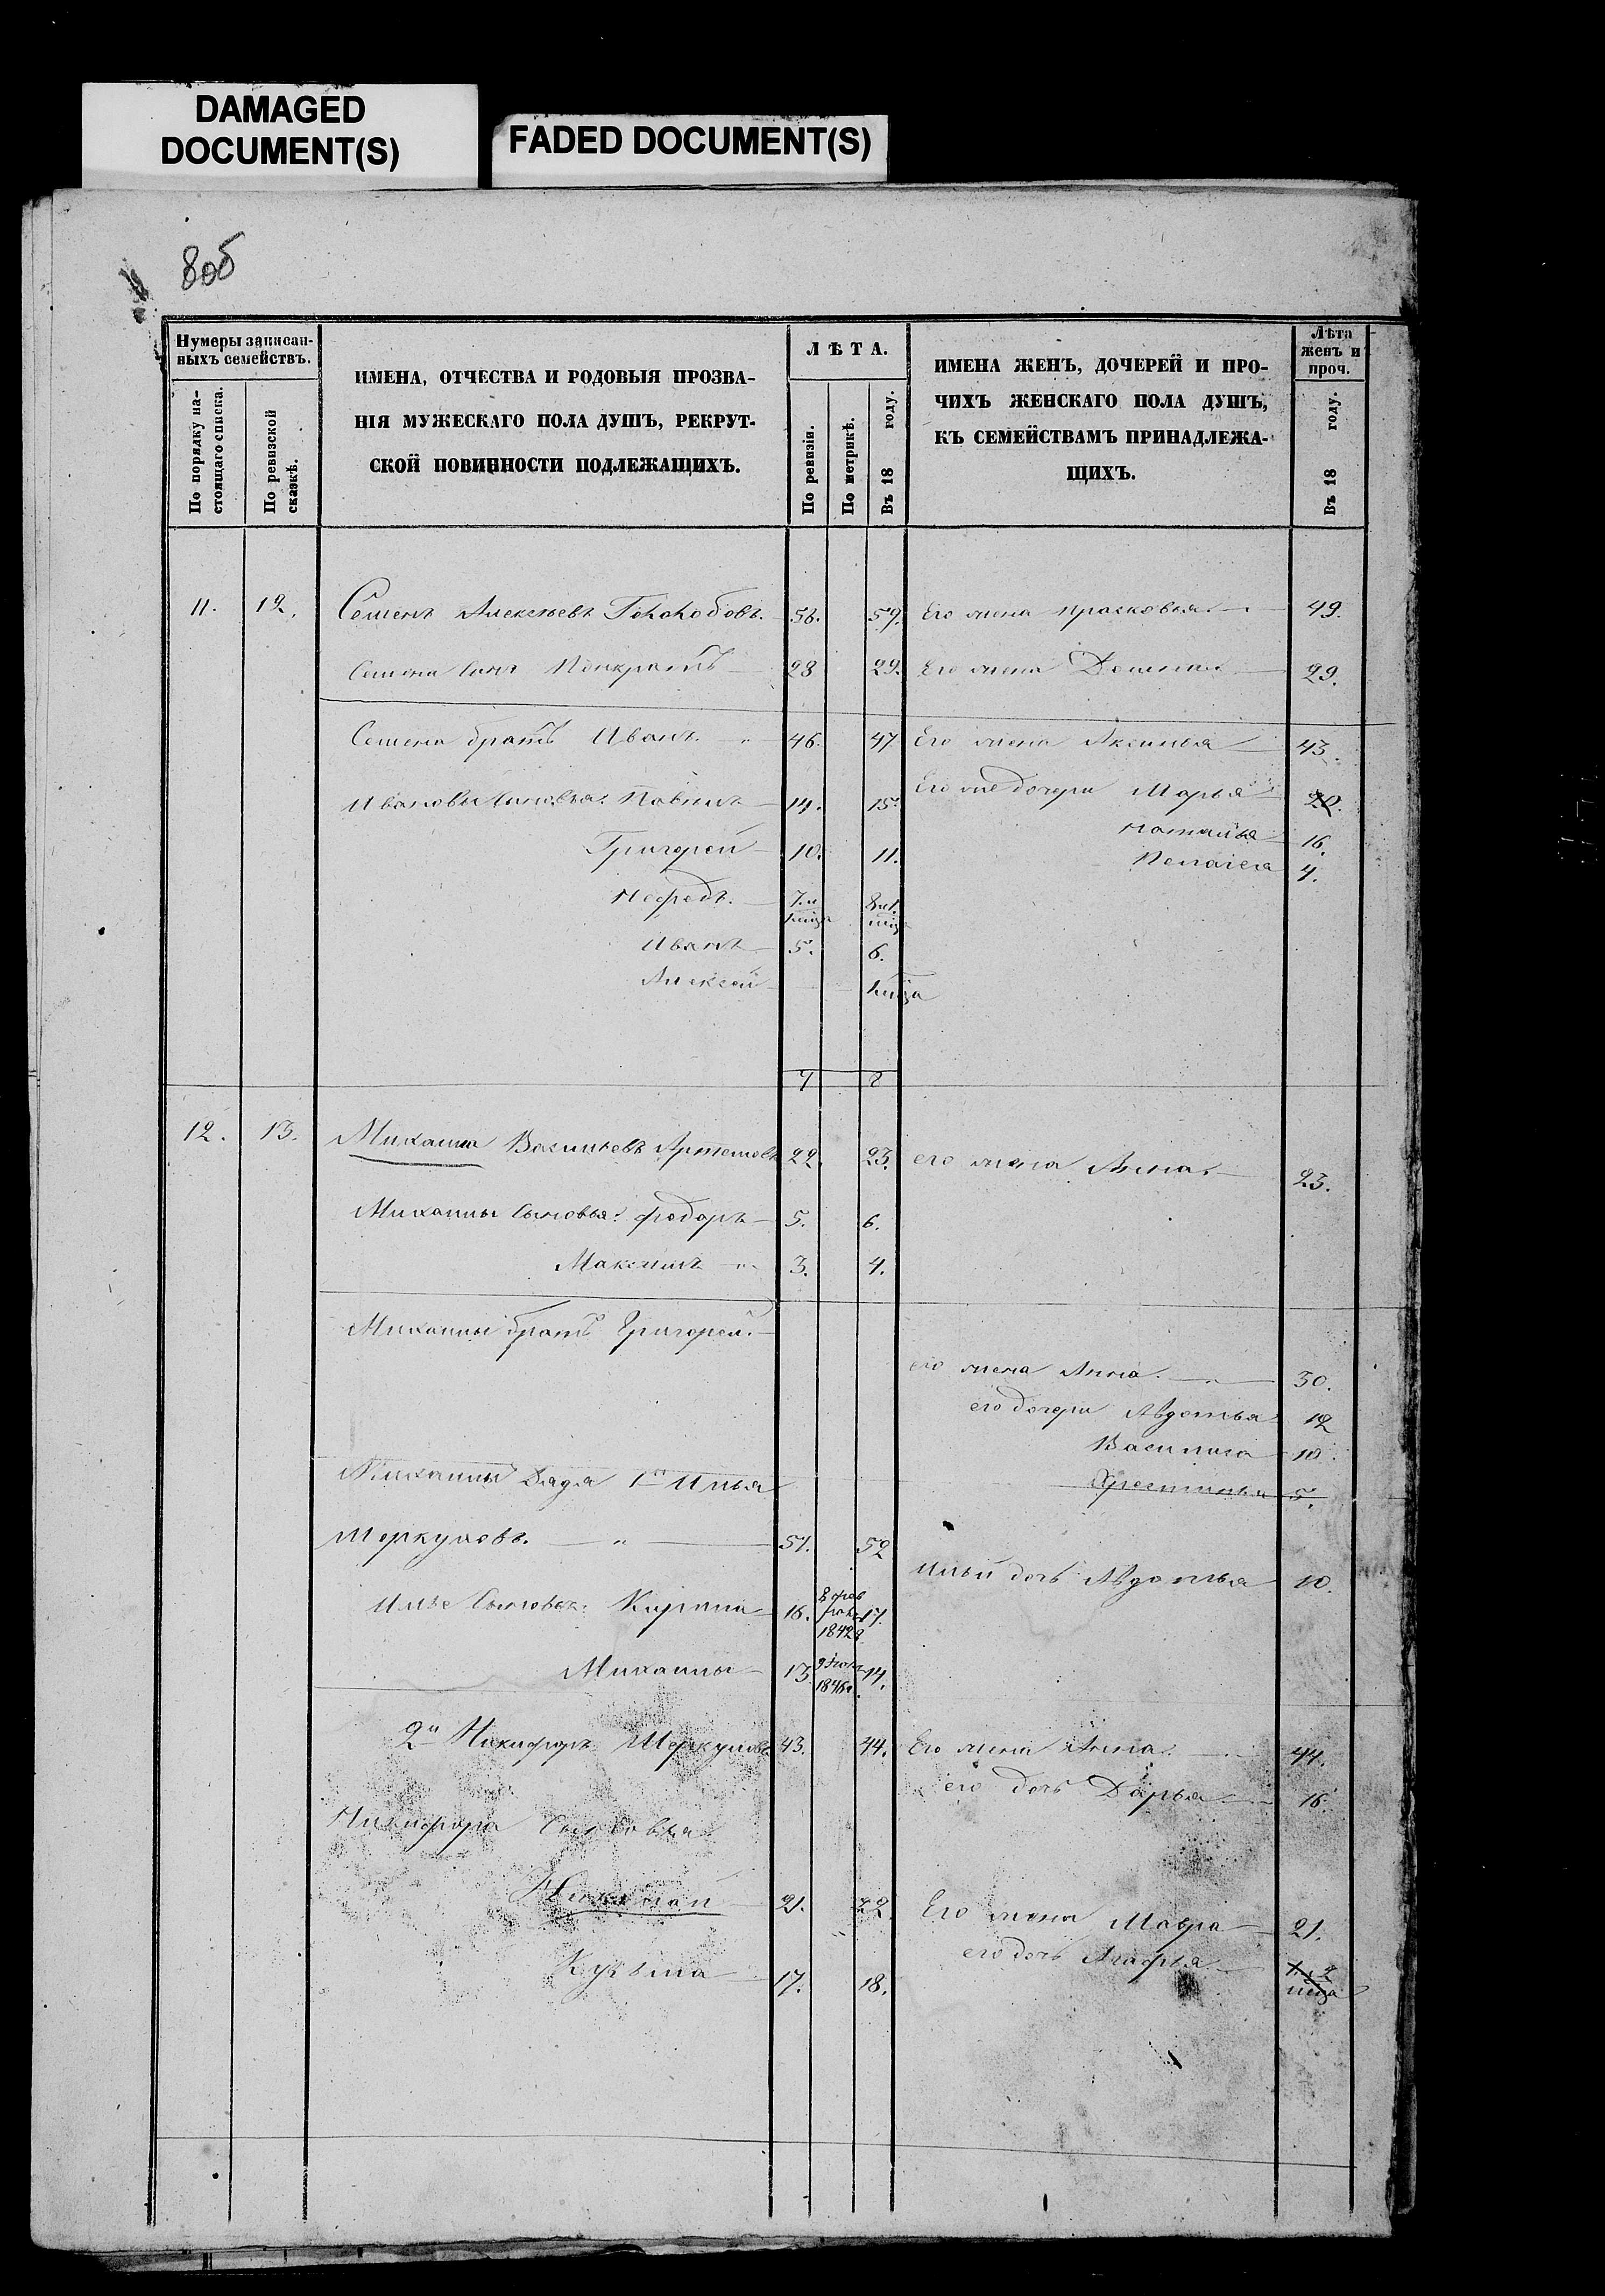 DAMAGED
DOCUMENT(S)
FADED DOCUMENT(S)
8об
Нумеры записан-
ныхъ семействъ.
По порядку на-
стоящаго списка.
По ревизской
сказкѣ.
ИМЕНА, ОТЧЕСТВА И РОДОВЫЯ ПРОЗВА-
НІЯ МУЖЕСКАГО ПОЛА ДУШЪ, РЕКРУТ-
СКОЙ ПОВИННОСТИ ПОДЛЕЖАЩИХЪ.
ЛѢТА.
По ревизіи.
По метрикѣ.
Въ 18 году.
ИМЕНА ЖЕНЪ, ДОЧЕРЕЙ И ПРО-
ЧИХЪ ЖЕНСКАГО ПОЛА ДУШЪ,
КЪ СЕМЕЙСТВАМЪ ПРИНАДЛЕЖА-
ЩИХЪ.
Лѣта
женъ и
проч.
Въ 18 году.
11. 12. Семенъ Алексѣевъ 59. Его жена Прасковья 49.
Семена сынъ Панкратъ 28 29. Его жена 29.
Семена братъ Иванъ 46. 47 Его жена Аксинья 43.
Ивановы сыновья: 14. 15. Его же дочери Марья
Наталья 16.
Григорей 10. 11. Пелагея 4.
Нефедъ
Иванъ 5. 6.
Алексей
7 8
12. 13. Михаила Васильевъ Артемовъ 22. 23. его жена Анна 23.
Михаилы сыновья: Федоръ 5. 6.
Максимъ 3. 4.
Михаилы братъ Григорей.
его жена Анна 30.
его дочери Авдотья 12
Василиса 10.
Хрестинья 5.
Михаилы дядя 1й Илья
Меркуловъ. 51. 52
Ильи дочь Авдотья 10.
Ильи сыновья: Кирила 16. 8 фев 1842 17.
Михаилы 13 1846 14.
2й Никифоръ Меркуловъ 43. 44. Его жена Анна 44.
его дочь Дарья 16.
Никифора сыновья
Николай 21. 22. Его жена Мавра 21.
его дочь Агафья
Кузьма 17. 18.